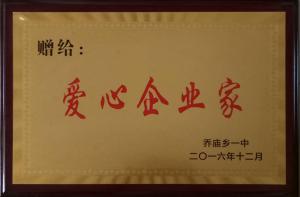 赠给：
爱心企业家
乔庙乡一中
二〇一六年十二月